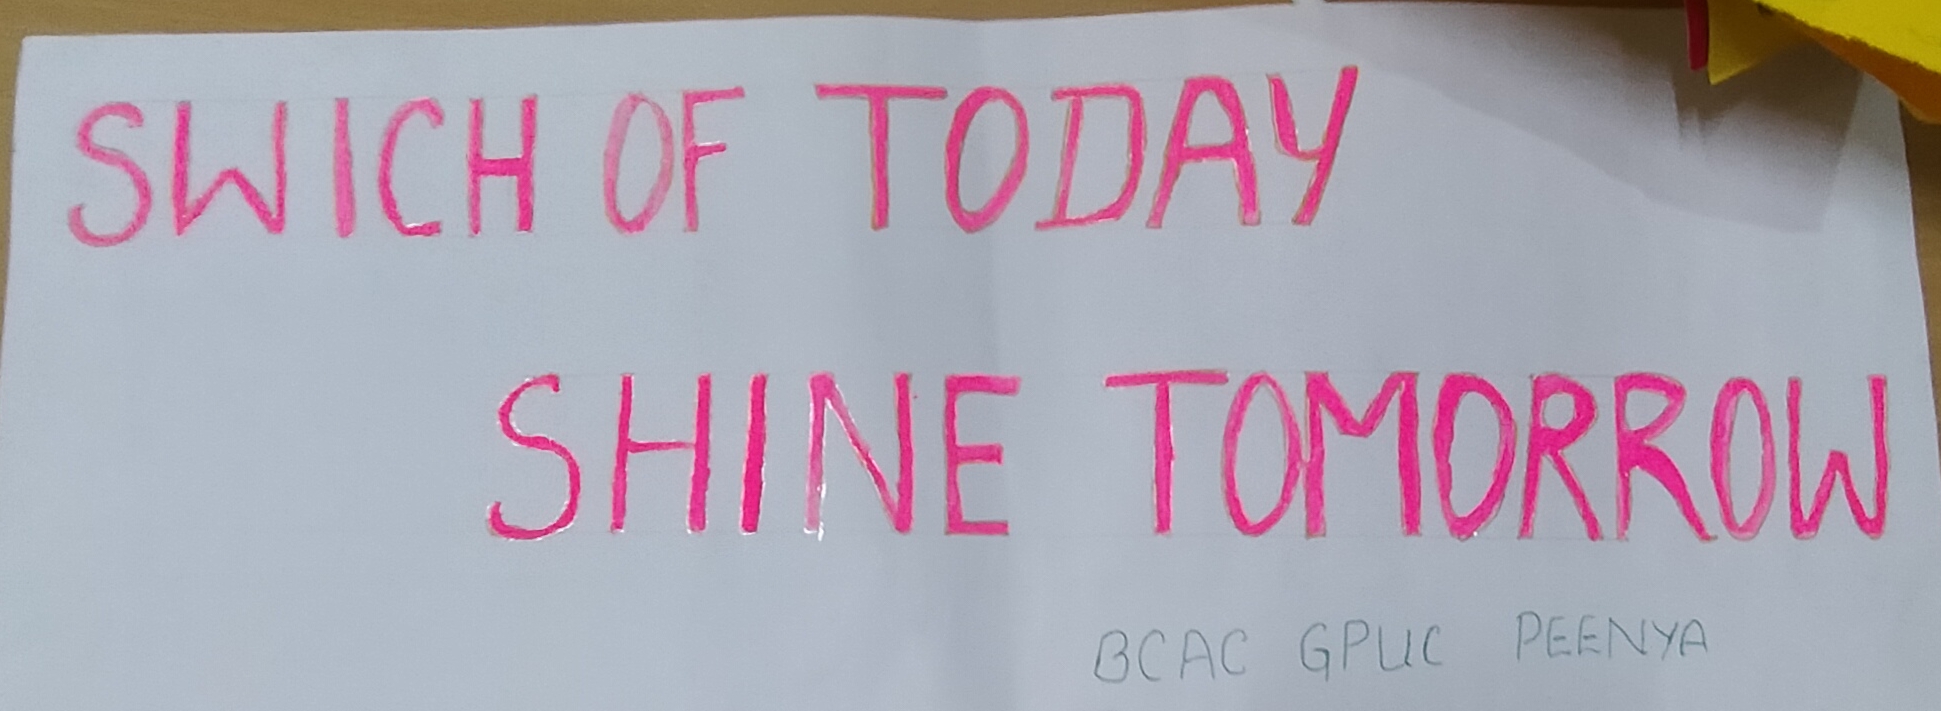 SWICH OF TODAY
SHINE TOMORROW
BCAC GPUC PEENYA